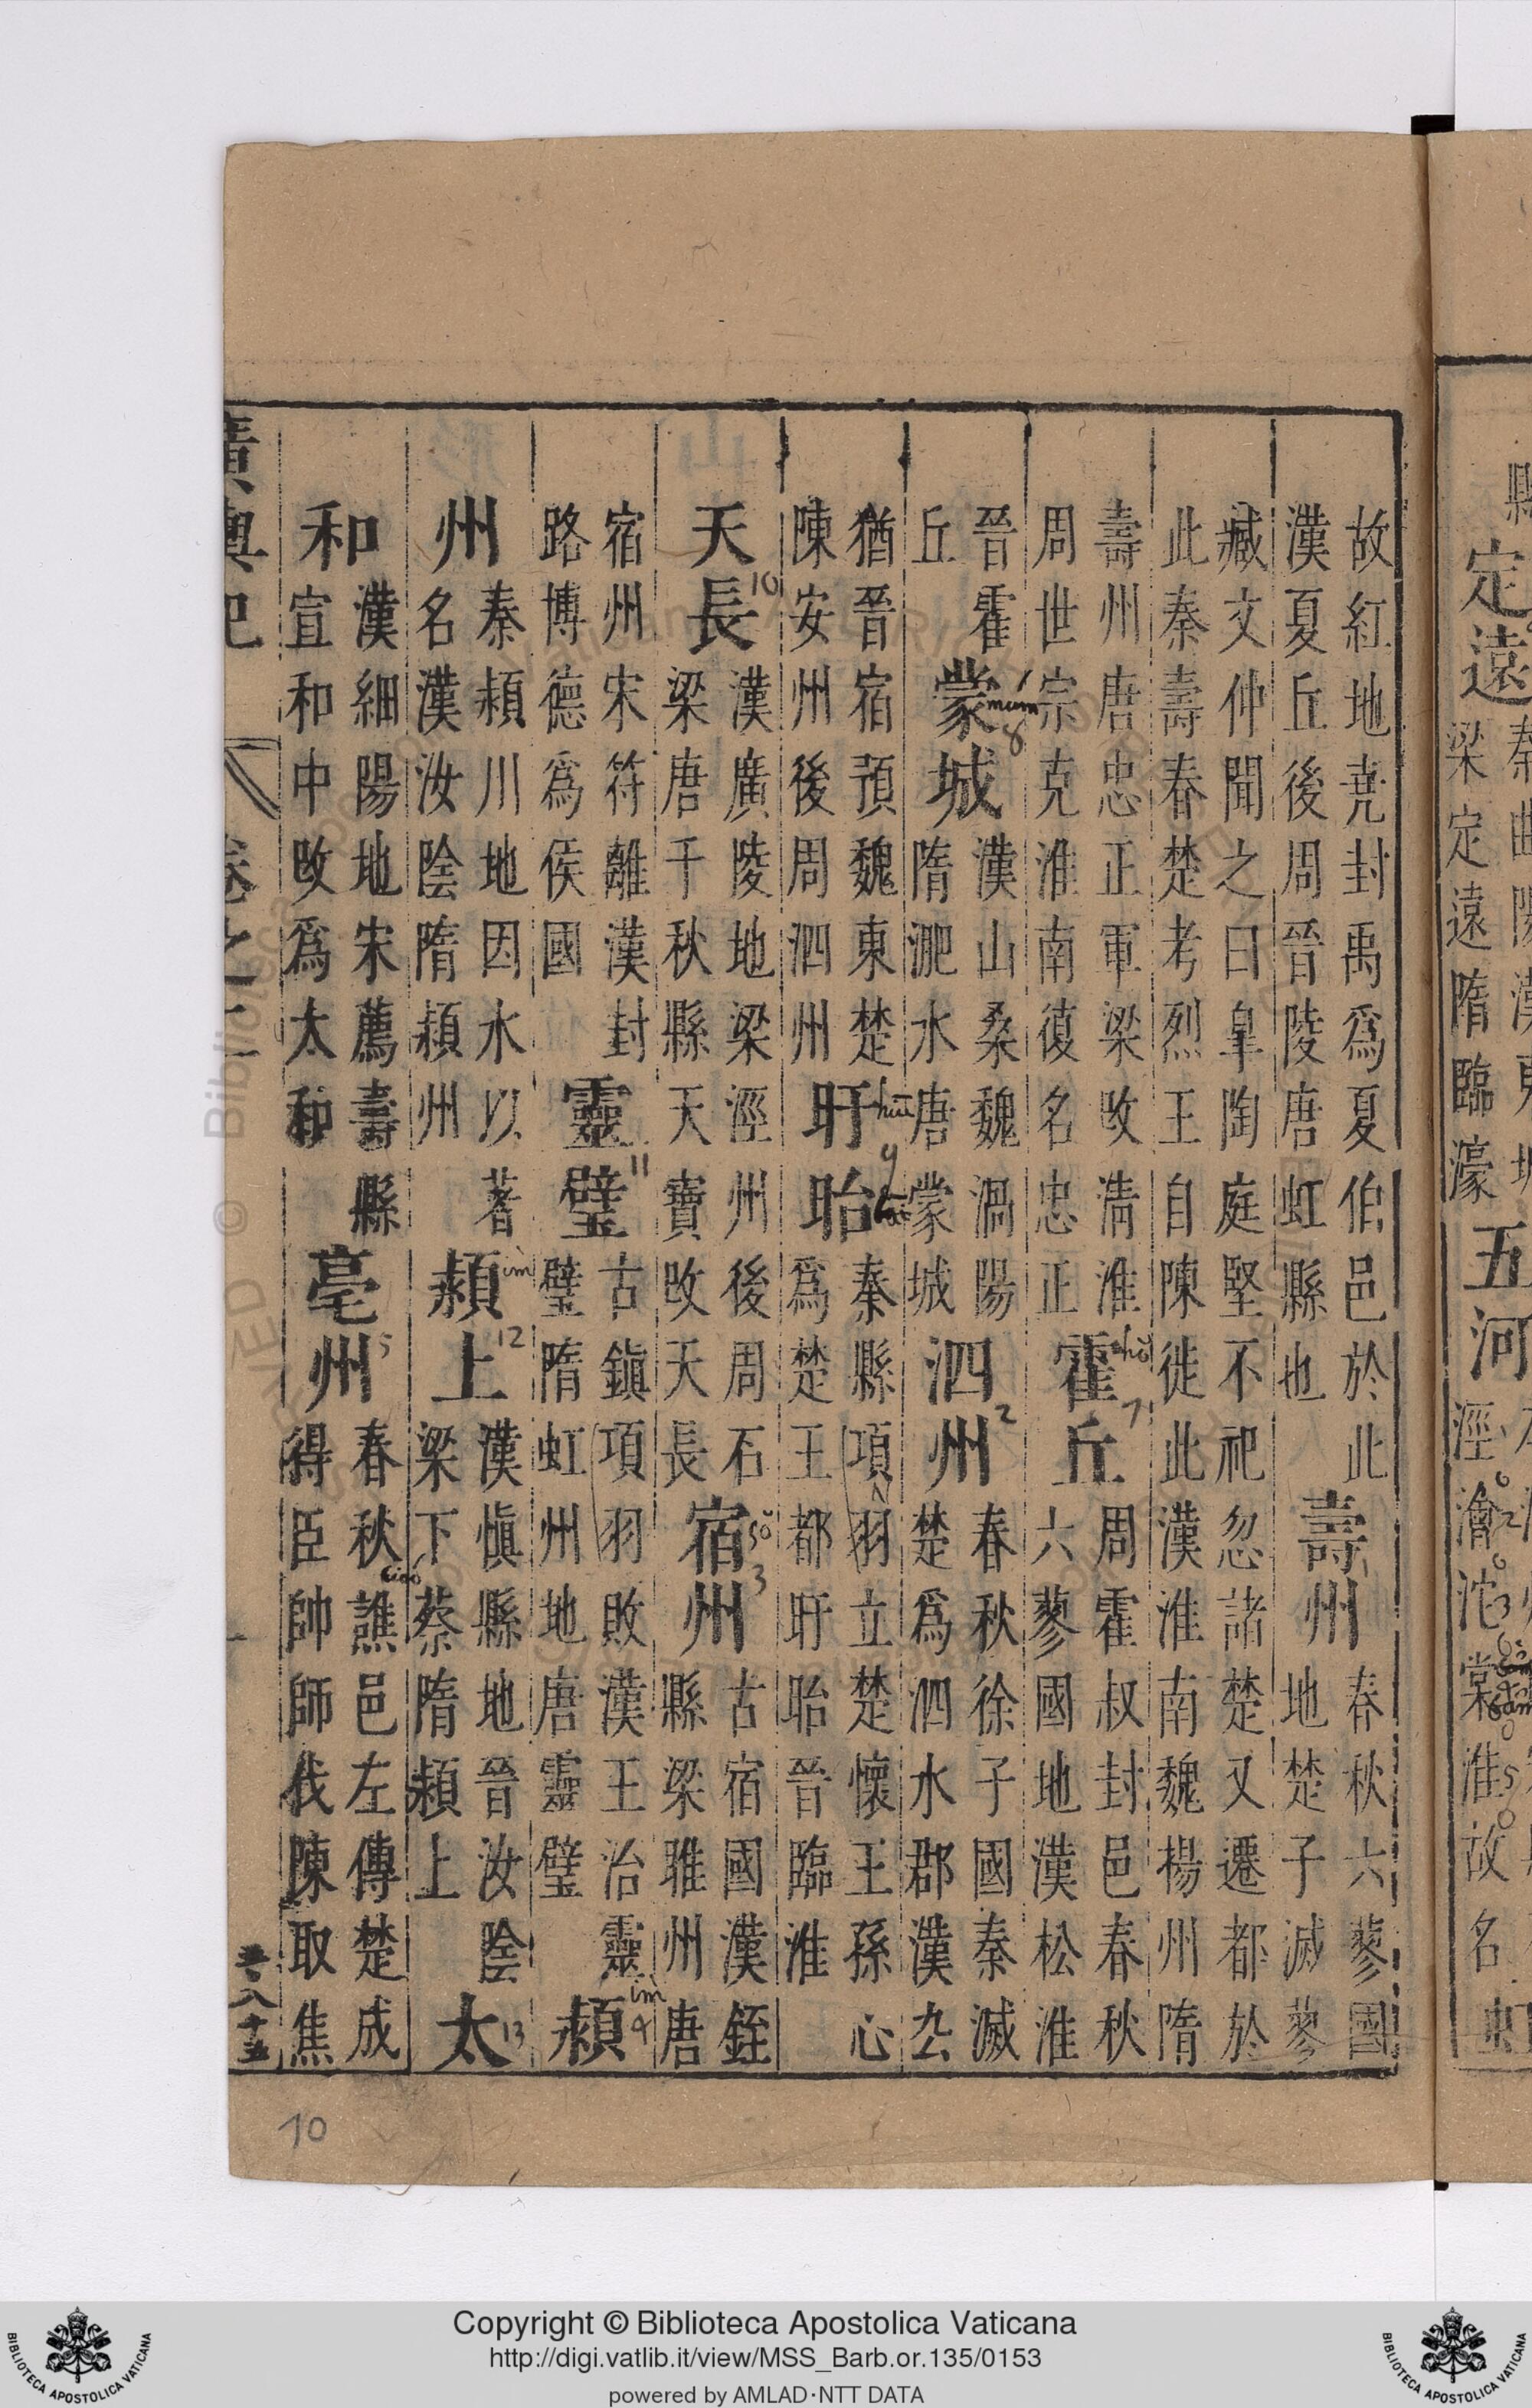 定遠
梁定遠隋臨濠
五河
涇澮沱棠淮故名
虹
故紅地堯封禹爲夏伯邑於此
漢夏丘後周晉陵唐虹縣也
壽州
春秋六蓼國
地楚子滅蓼
臧文仲聞之曰皐陶庭堅不祀忽諸楚又遷都於
此秦壽春楚考烈王自陳徙此漢淮南魏楊州隋
壽州唐忠正軍梁改淸淮
周世宗克淮南復名忠正
霍丘
hŏ
7
周霍叔封邑春秋
六蓼國地漢松淮
晉霍
丘
蒙城
mum
8
漢山桑魏渦陽
隋淝水唐蒙城
泗州
2
春秋徐子國秦滅
楚爲泗水郡漢厹
猶晉宿預魏東楚
陳安州後周泗州
盱眙
9
秦縣項羽立楚懷王孫心
爲楚王都盱眙晉臨淮
天長
10
漢廣陵地梁涇州後周石
梁唐千秋縣天寶改天長
宿州
sŏ
3
古宿國漢銍
縣梁睢州唐
宿州宋符離漢封
路博德爲侯國
靈璧
11
古鎮項羽敗漢王治靈
璧隋虹州地唐靈璧
潁
im
4
州
秦潁川地因水以著
名漢汝陰隋潁州
潁上
im
12
漢愼縣地晉汝陰
梁下蔡隋潁上
太
13
和
漢細陽地宋薦壽縣
宣和中改爲太和
亳州
5
春秋譙邑左傳楚成
得臣帥師伐陳取焦
廣輿記
卷之二
10
Copyright © Biblioteca Apostolica Vaticana
http://digi.vatlib.it/view/MSS_Barb.or.135/0153
powered by AMLAD·NTT DATA
BIBLIOTECA APOSTOLICA VATICANA
BIBLIOTECA APOSTOLICA VATICANA